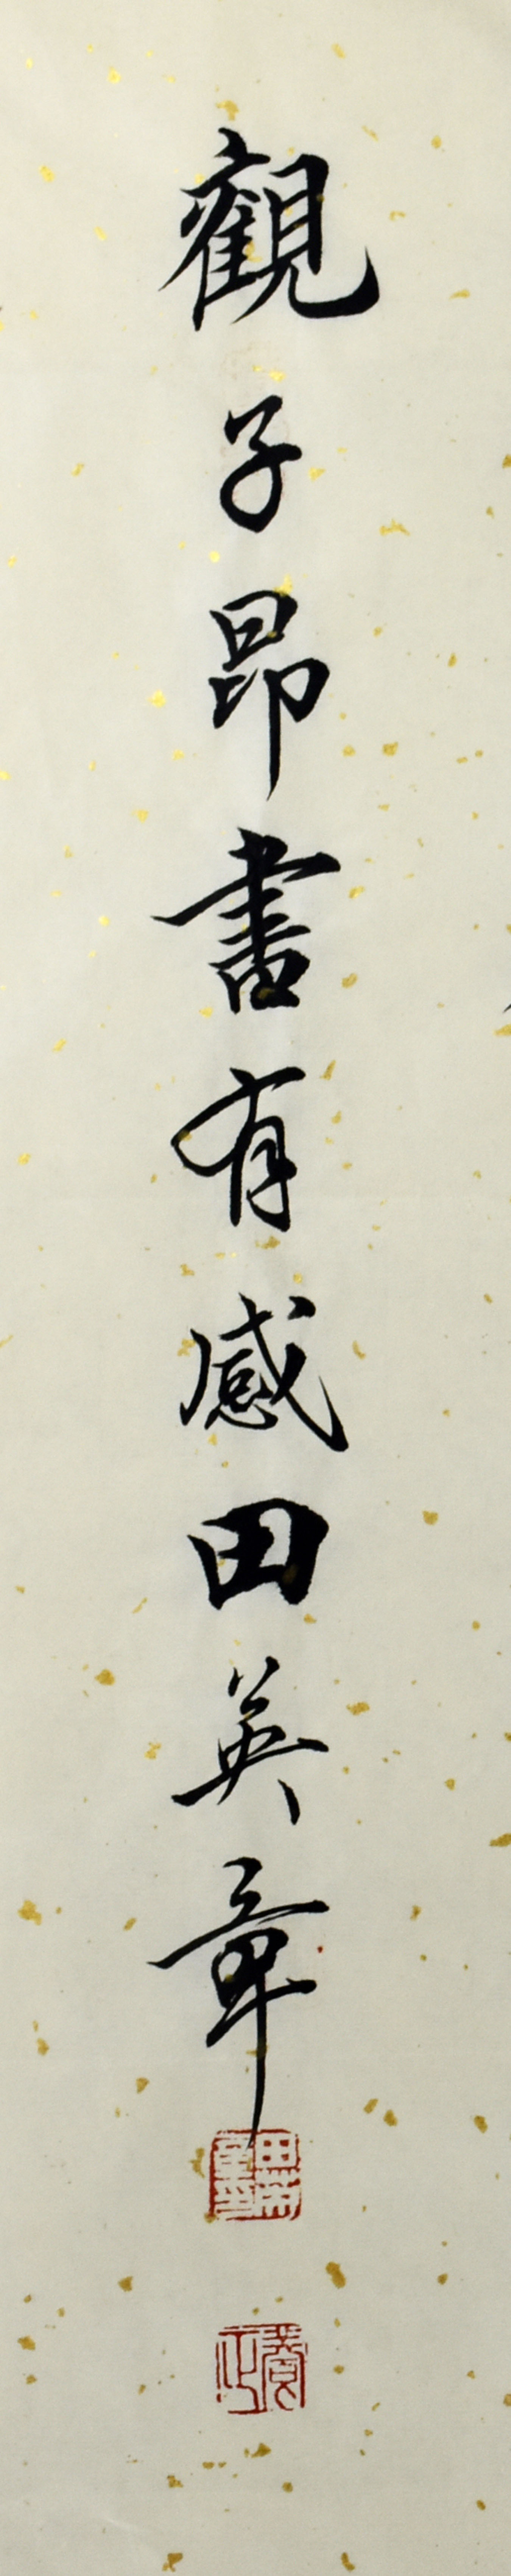 觀子昂書有感田英章